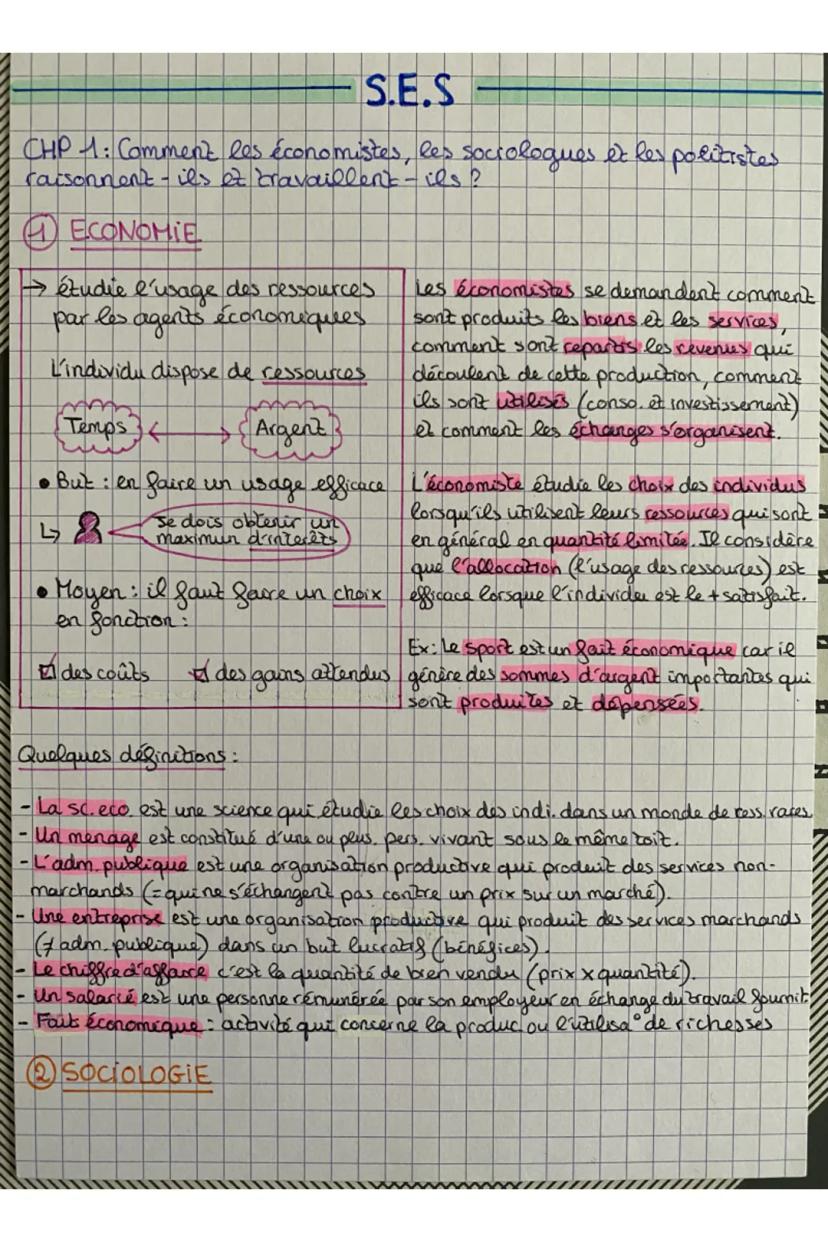 S.E.S
CHP 1 : Comment les économistes, les sociologues et les politistes
raisonnent-ils et travaillent-ils ?
1 ECONOMIE
→ étudie l'usage des ressources
par les agents économiques
L'individu dispose de ressources
Temps ↔ Argent
• But : en faire un usage efficace
↳ se dois obtenir un
maximun d'interêts
• Moyen : il faut faire un choix
en fonction :
☑ des coûts ☑ des gains attendus
Les économistes se demandent comment
sont produits les biens et les services,
comment sont repartis les revenues qui
découlent de cette production, comment
ils sont utilisés (conso. et investissement)
et comment les échanges s'organisent.
L'économiste étudie les choix des individus
lorsqu'ils utilisent leurs ressources qui sont
en général en quantité limitée. Il considère
que l'allocation (l'usage des ressources) est
efficace lorsque l'individu est le + satisfait.
Ex : Le sport est un fait économique car il
génère des sommes d'argent importantes qui
sont produites et dépensées.
Quelques définitions :
- La sc. eco. est une science qui étudie les choix des indi. dans un monde de ress. rares
- Un menage est constitué d'une ou plus. pers. vivant sous le même toit.
- L'adm. publique est une organisation productive qui produit des services non-
marchands (= qui ne s'échangent pas contre un prix sur un marché).
- Une entreprise est une organisation productive qui produit des services marchands
(≠ adm. publique) dans un but lucratif (bénéfices).
- Le chiffre d'affaire c'est la quantité de bien vendu (prix x quantité).
- Un salarié est une personne rémunérée par son employeur en échange du travail fournit
- Fait économique : activité qui concerne la produc. ou l'utilisa° de richesses
2 SOCIOLOGIE